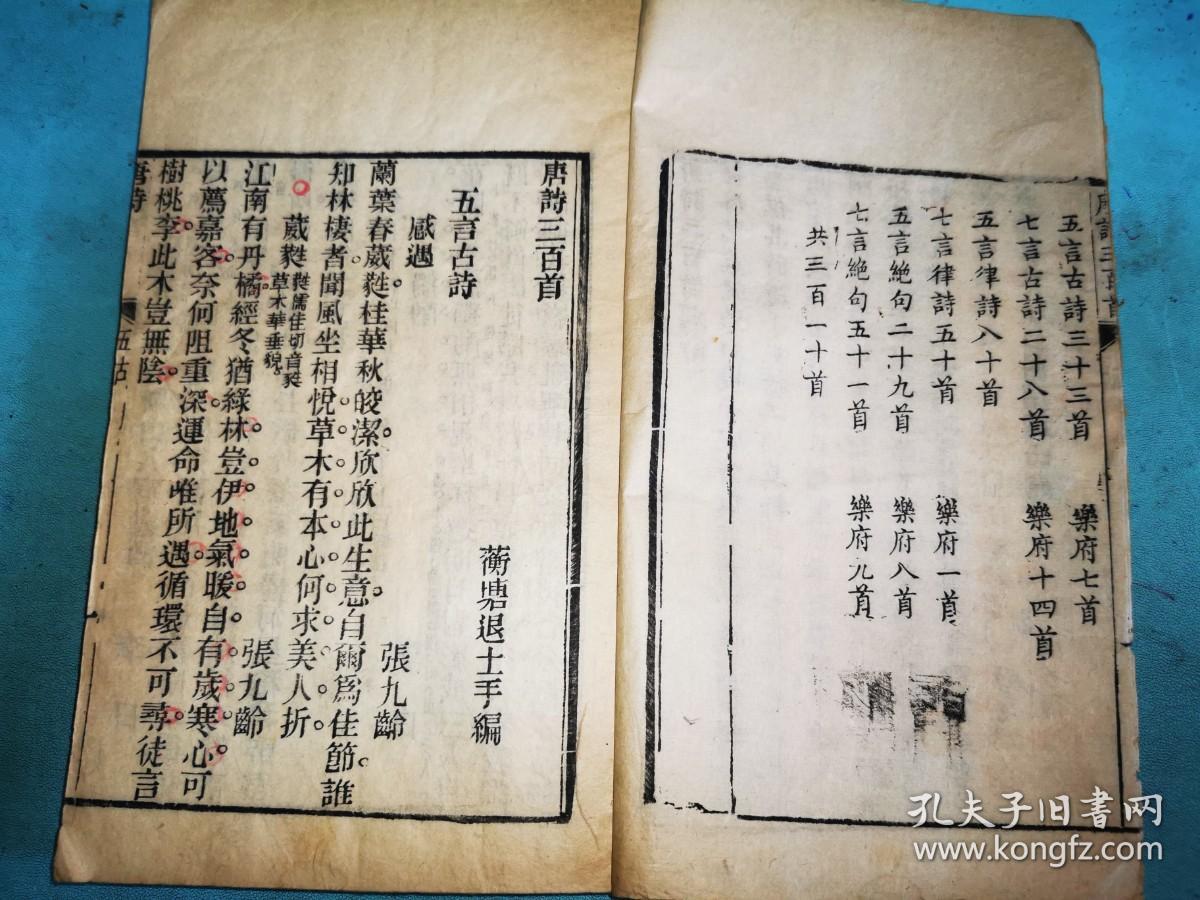 唐詩三百首
五言古詩三十三首　樂府七首
七言古詩二十八首　樂府十四首
五言律詩八十首
七言律詩五十首　樂府一首
五言絶句二十九首　樂府八首
七言絶句五十一首　樂府九首
共三百一十首
唐詩三百首
蘅塘退士手編
五言古詩
感遇　張九齡
蘭葉春葳蕤桂華秋皎潔欣欣此生意自爾爲佳節誰
知林棲者聞風坐相悅草木有本心何求美人折
葳蕤蕤儒佳切音甤
草木華垂貌
張九齡
江南有丹橘經冬猶綠林豈伊地氣暖自有歲寒心可
以薦嘉客奈何阻重深運命唯所遇循環不可尋徒言
樹桃李此木豈無陰
唐詩　五古
孔夫子旧书网
www.kongfz.com